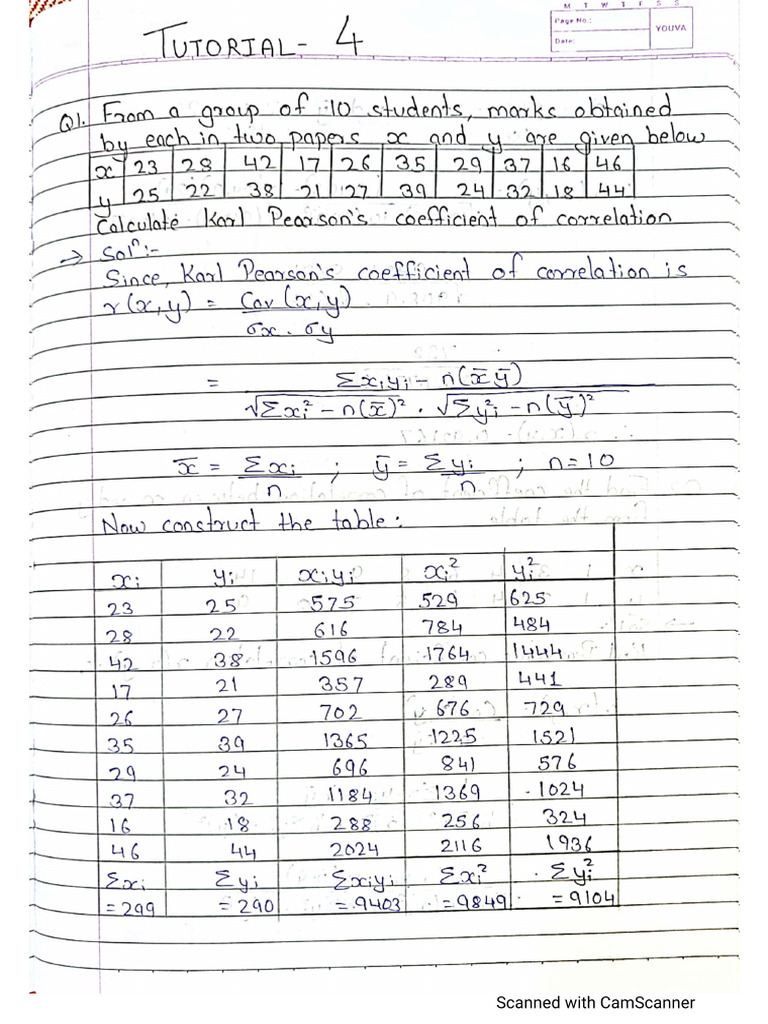 M T W T F S S
Page No.:
YOUVA
Date:
TUTORIAL- 4
Q1. From a group of 10 students, marks obtained
by each in two papers x and y are given below
x 23 28 42 17 26 35 29 37 16 46
y 25 22 38 21 27 39 24 32 18 44
Calculate Karl Pearson's coefficient of correlation
→ Solⁿ:-
Since, Karl Pearson's coefficient of correlation is
r(x,y) = Cov (x,y)
σx . σy
= Σxiyi - n(x̄ȳ)
√Σxi² - n(x̄)² . √Σyi² - n(ȳ)²
x̄ = Σxi ; ȳ = Σyi ; n=10
n n
Now construct the table:
xi yi xiyi xi² yi²
23 25 575 529 625
28 22 616 784 484
42 38 1596 1764 1444
17 21 357 289 441
26 27 702 676 729
35 39 1365 1225 1521
29 24 696 841 576
37 32 1184 1369 1024
16 18 288 256 324
46 44 2024 2116 1936
Σxi Σyi Σxiyi Σxi² Σyi²
=299 =290 =9403 =9849 =9104
Scanned with CamScanner